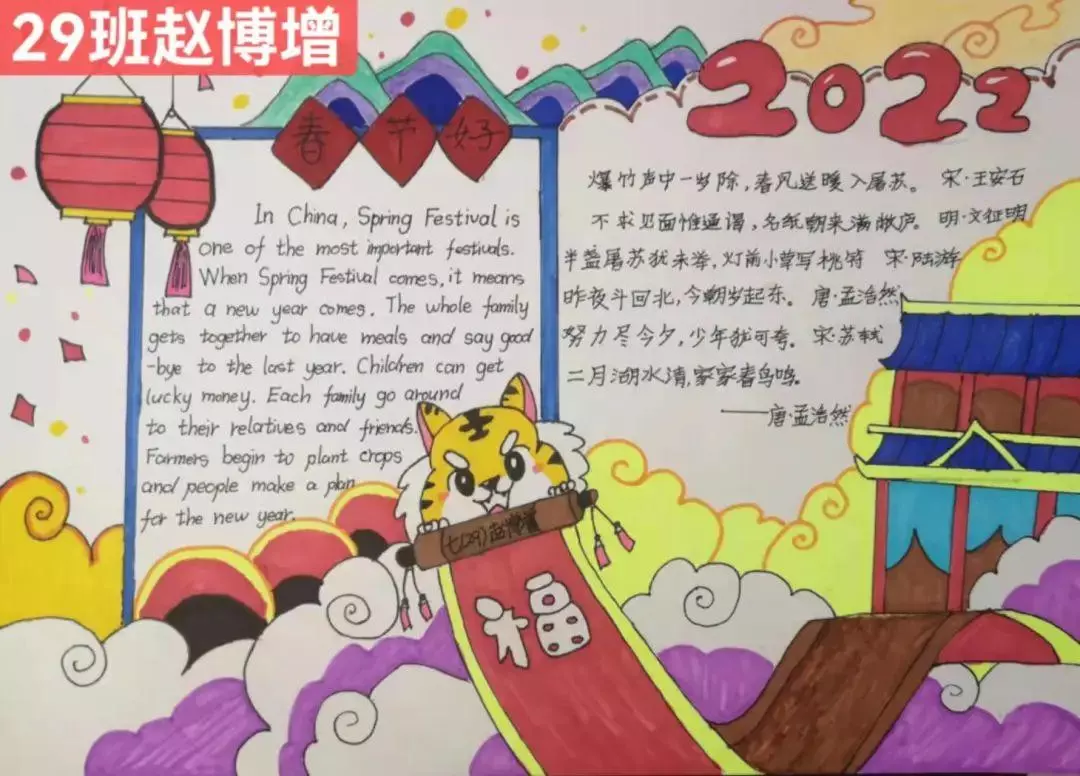 29班赵博增
春节好
In China, Spring Festival is
one of the most important festivals.
When Spring Festival comes, it means
that a new year comes. The whole family
gets together to have meals and say good
-bye to the last year. Children can get
lucky money. Each family go around
to their relatives and friends.
Farmers begin to plant crops
and people make a plan
for the new year.
2022
爆竹声中一岁除,春风送暖入屠苏。 宋·王安石
不求见面惟通谒,名纸朝来满敝庐。 明·文征明
半盏屠苏犹未举,灯前小草写桃符 宋·陆游
昨夜斗回北,今朝岁起东。 唐·孟浩然
努力尽今夕,少年犹可夸。 宋·苏轼
二月湖水清,家家春鸟鸣。
——唐·孟浩然
(七(29)赵博增
福